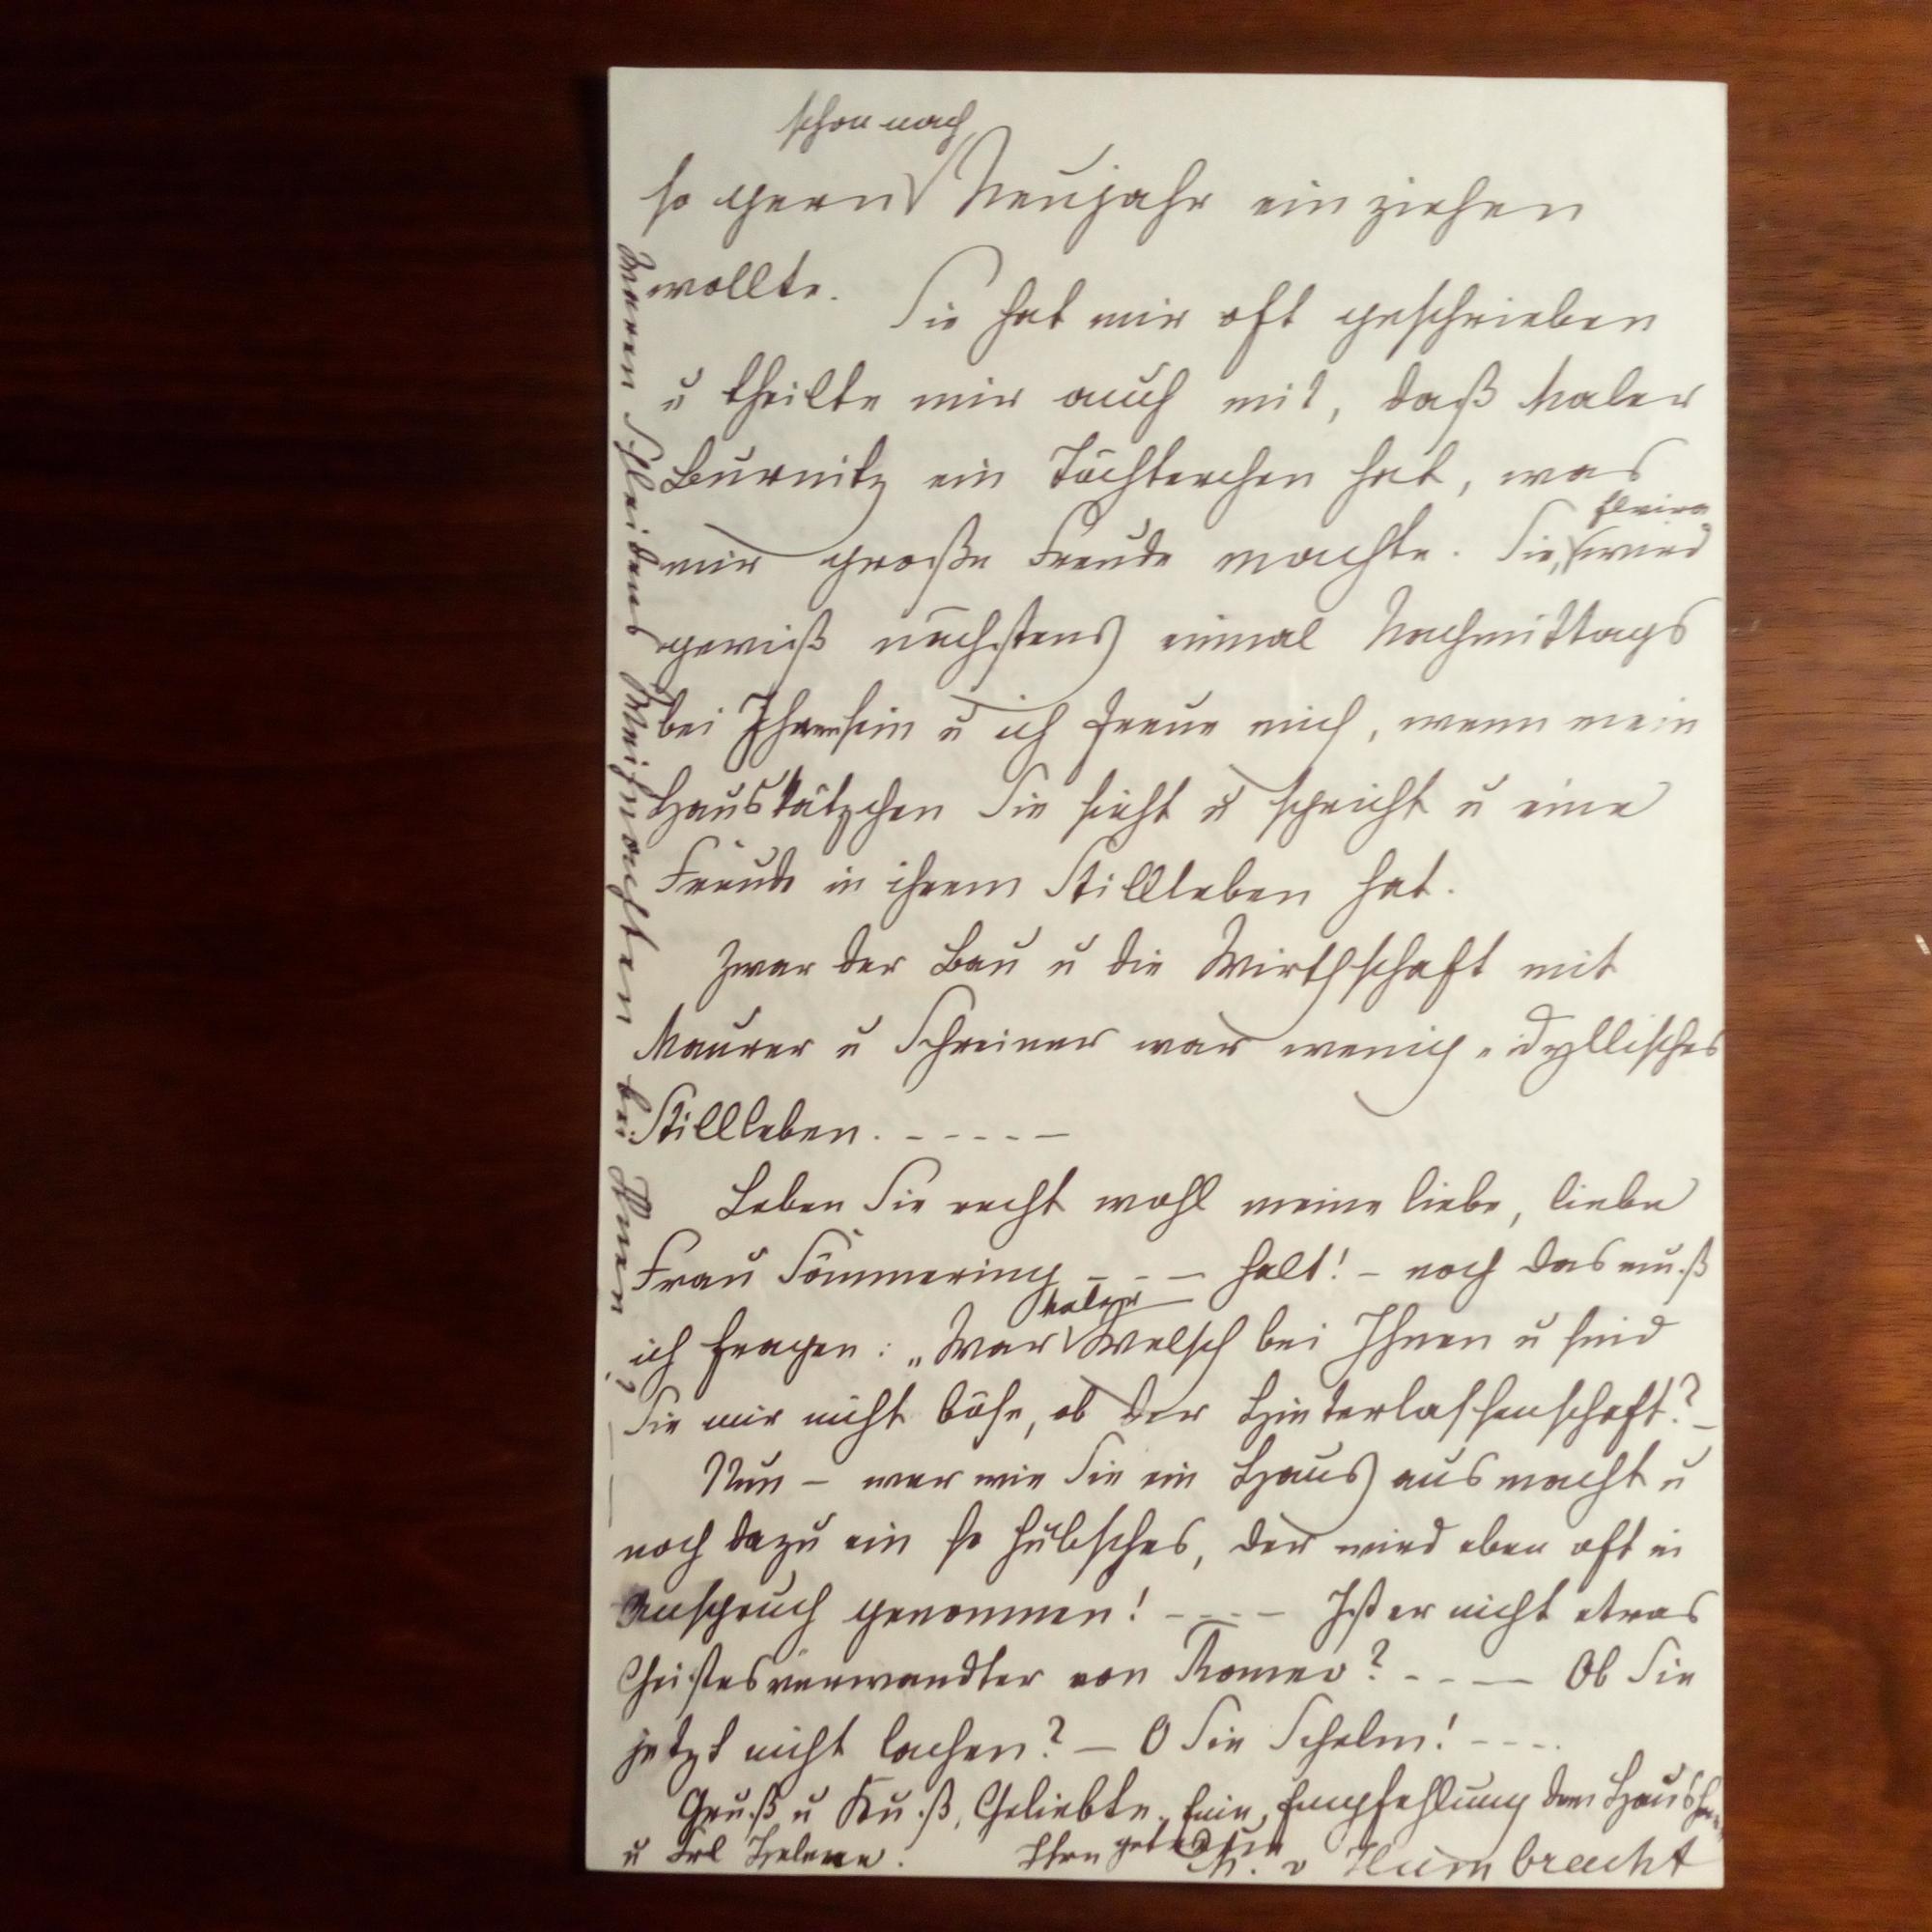 schon nach
so gern Neujahr einziehen
wollte. Sie hat mir oft geschrieben
u theilte mir auch mit, daß Maler
Burnitz ein Töchterchen hat, was
mir große Freude machte. Sie, Elvira wird
gewiß nächstens einmal Nachmittags
bei Ihnen sein u ich freue mich, wenn mein
Hauskätzchen Sie sieht u spricht u eine
Freude in ihrem Stillleben hat.
Zwar der Bau u die Wirthschaft mit
Maurer u Schreiner war wenig „idyllisches
Stillleben. - - - - -
Leben Sie recht wohl meine liebe, liebe
Frau Sömmering - - - halt! - noch das muß
Maler
ich fragen: „War Welsch bei Ihnen u sind
Sie mir nicht böse, ob der Hinterlassenschaft? -
Nun - wer wie Sie ein Haus ausmacht u
noch dazu ein so hübsches, der wird eben oft in
Anspruch genommen! - - - - Ist er nicht etwas
Geistesverwandter von Romeo? - - - Ob Sie
jetzt nicht lachen? - O Sie Schelm! - - - -
Gruß u Kuß, Geliebte, Empfehlung dem
u Frl Helene. Ihre v Humbracht
Waren Schleidens Weihnachten bei Ihnen? -